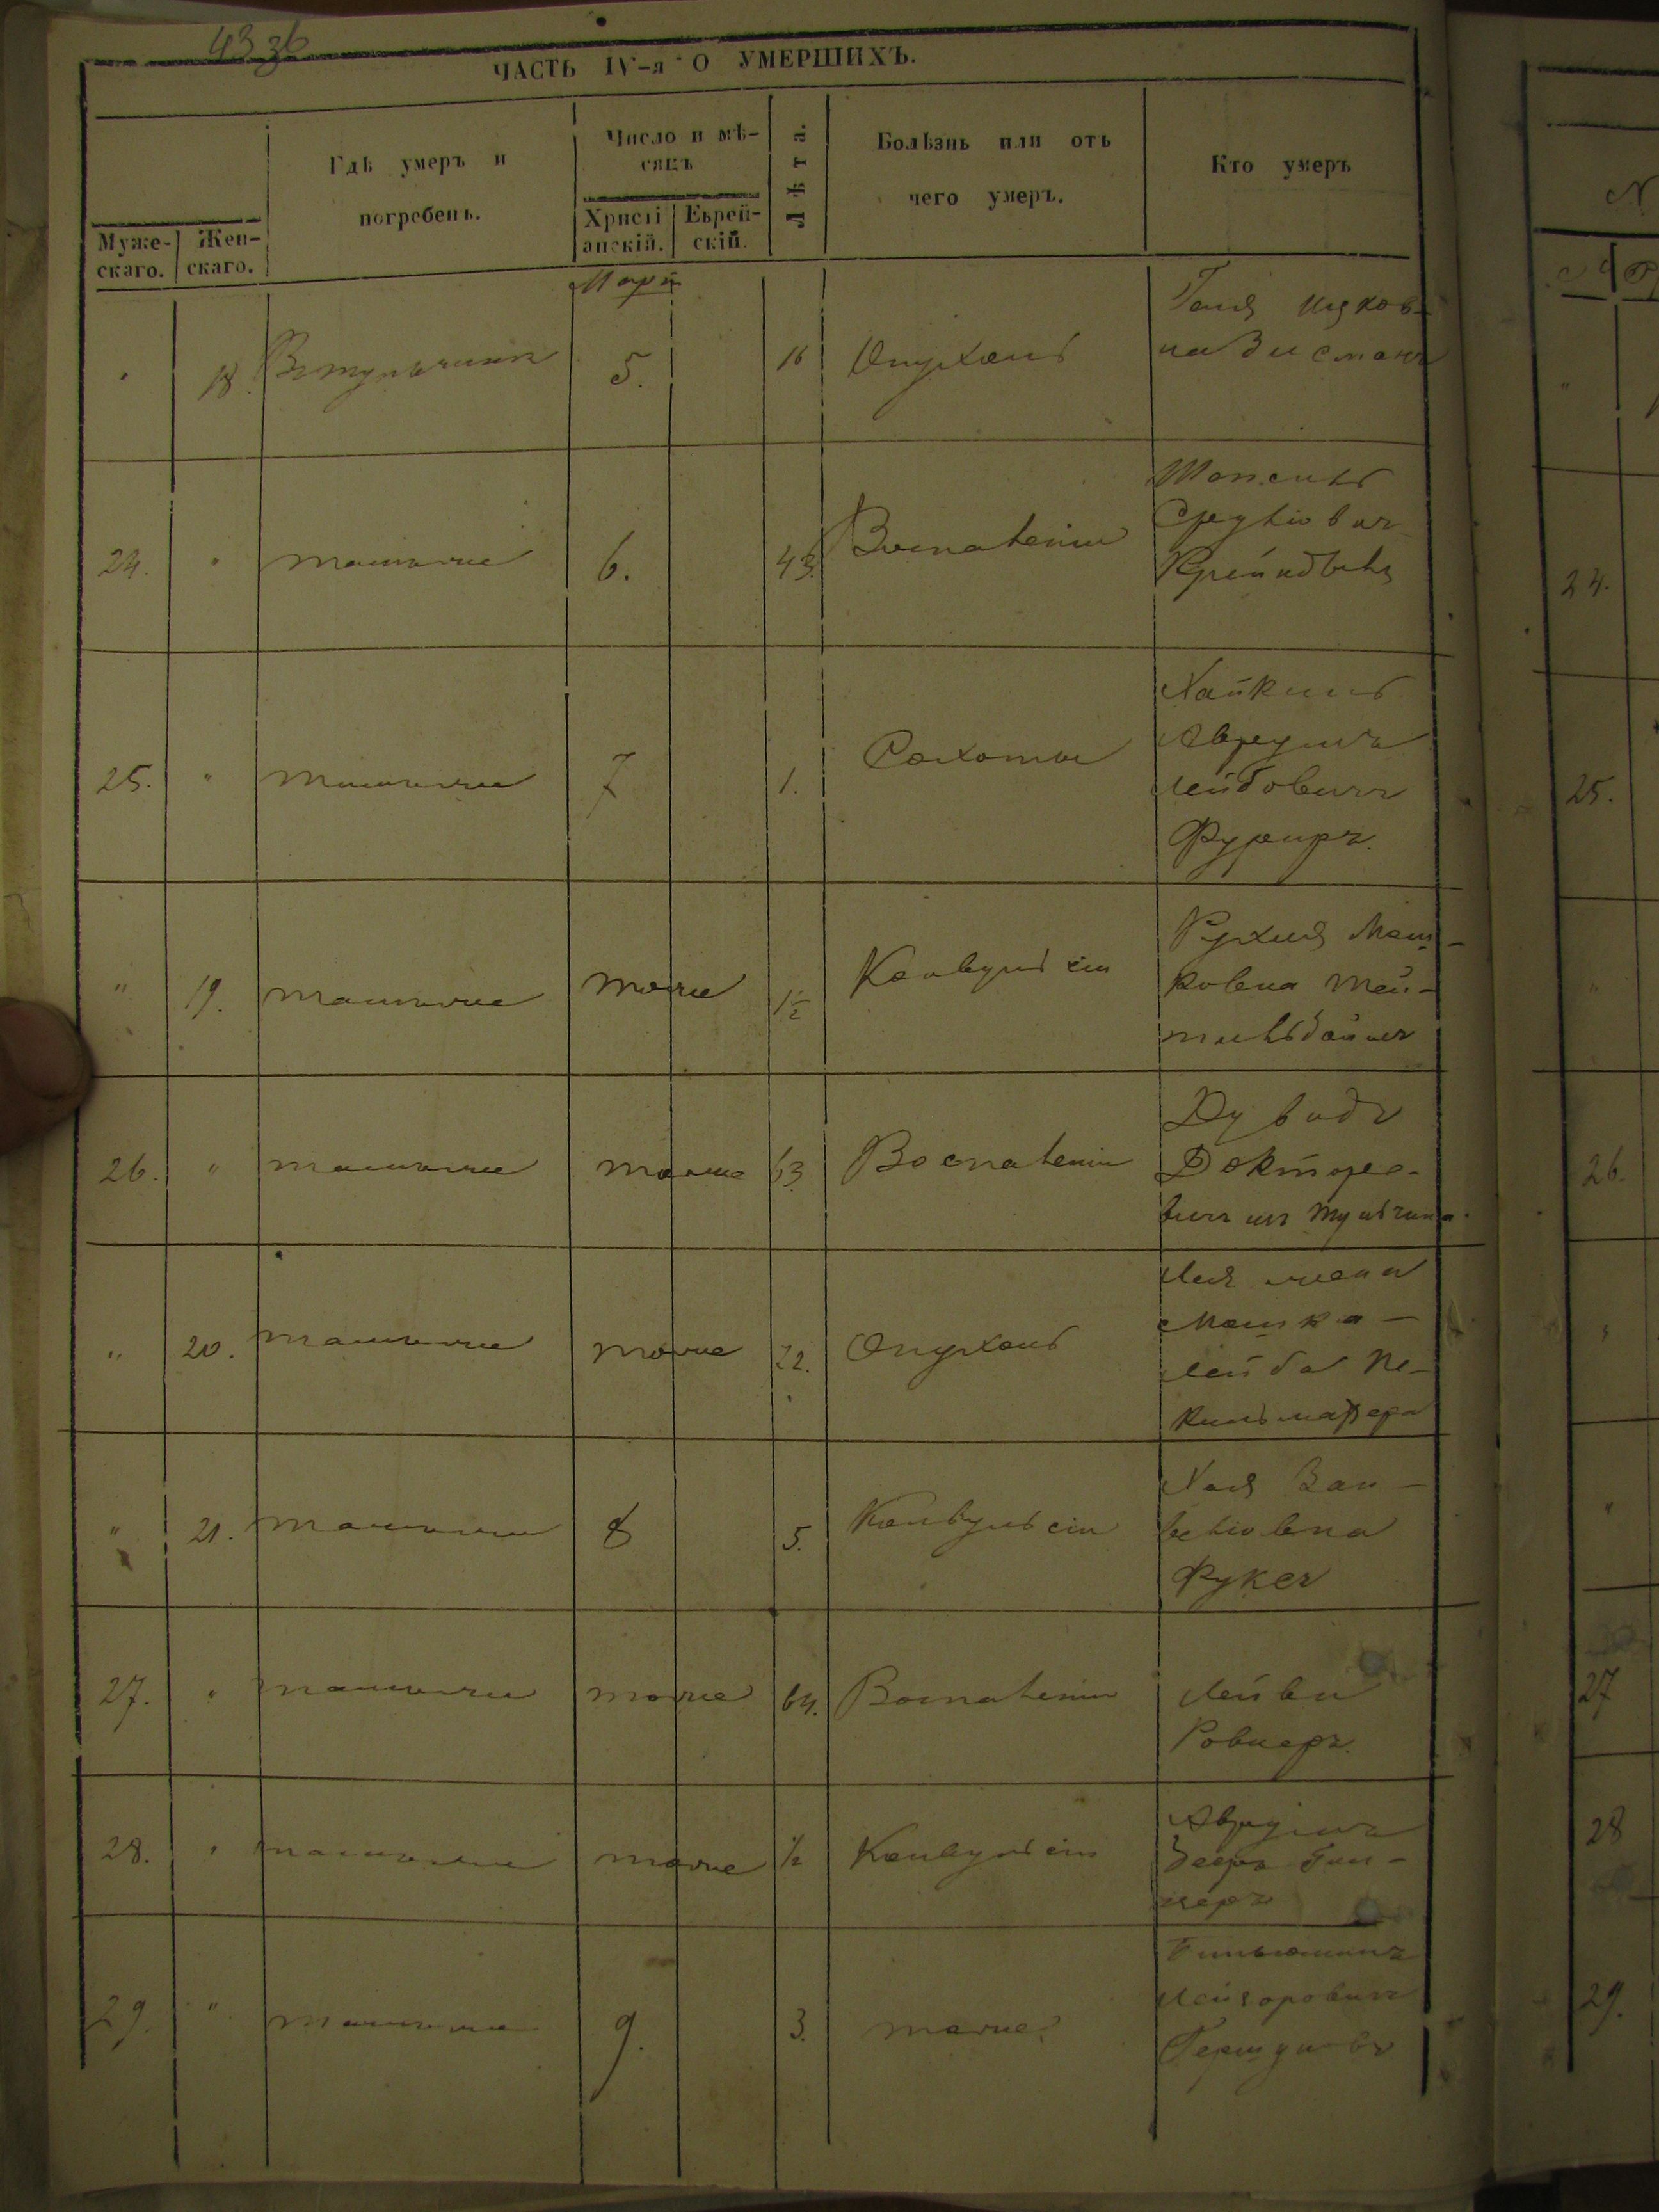 43 36
ЧАСТЬ IV-я О УМЕРШИХЪ.
Муже-
скаго.
Жен-
скаго.
Гдѣ умеръ и
погребенъ.
Число и мѣ-
сяцъ
Христі
анскій.
Еврей-
скій.
Лѣта.
Болѣзнь или отъ
чего умеръ.
Кто умеръ
Мартъ
" 18. Втульчинѣ 5. 16 Опухоль
на Зисманъ
24. " тамъже 6. 43. Воспаленіи
25. " тамъже 7 1. Сохоты
Хайкиль
Аврумъ
Лейбовичъ
Фуреръ.
" 19. тамъже тоже 1½ Конвульсіи
Рухля Мош-
ковна
26. " тамъже тоже 63. Воспаленіи
Дувидъ
Докторо-
вичъ изъ Тульчина.
" 20. тамъже тоже 22. Опухоль
Лея жена
Мошка-
Лейба
" 21. тамъже 8 5. Конвульсіи
Хая Зан-
велювна
Фуксъ
27. " тамъже тоже 64. Воспаленіи
Лейви
Ровнеръ.
28. " тамъже тоже ½ Конвульсіи
Аврумъ
29. " тамъже 9. 3. тоже.
Биньюминъ
Лейзоровичъ
24.
25.
26.
27
28
29.